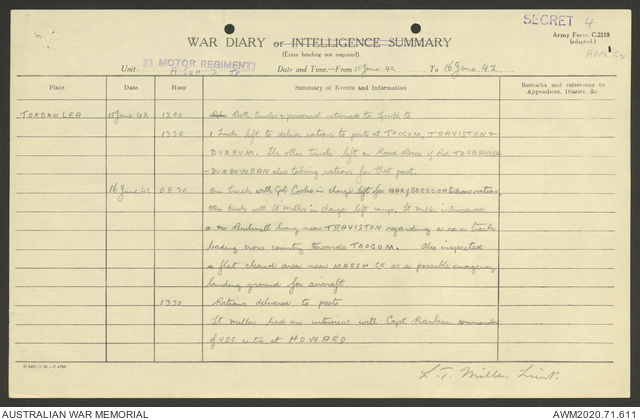 SECRET 4
WAR DIARY or INTELLIGENCE SUMMARY
(Erase heading not required).
Army Form C.2118
(adapted.)
Unit 31 MOTOR REGIMENT
Date and Time.—From 15 June 42 To 16 June 42
Place Hour Summary of Events and Information Remarks and references to Appendices, Diaries, &c.
TORBANLEA 15 June 42 1200 Both trucks & personnel returned to
1330 1 Truck left to deliver rations to posts at TOOGUM, TRAVISTON &
BURRUM. The other truck left on Road Recce of Rd TORBANLEA
- DUNDOWRAN also taking rations for that post.
16 June 42 0830 One truck with Cpl Cooks in charge left for MARYBOROUGH to draw rations,
Other truck with Lt Miller in charge left camp. Lt Miller interviewed
a Mr living near TRAVISTON regarding a track
leading cross country towards TOOGUM. Also inspected
a flat cleared area near MARSH CK. as a possible emergency
landing ground for aircraft
1330 Rations delivered to posts
Lt Miller had an interview with Capt commander
of VDC centre at HOWARD
L.T. Miller Lieut.
AUSTRALIAN WAR MEMORIAL AWM2020.71.611